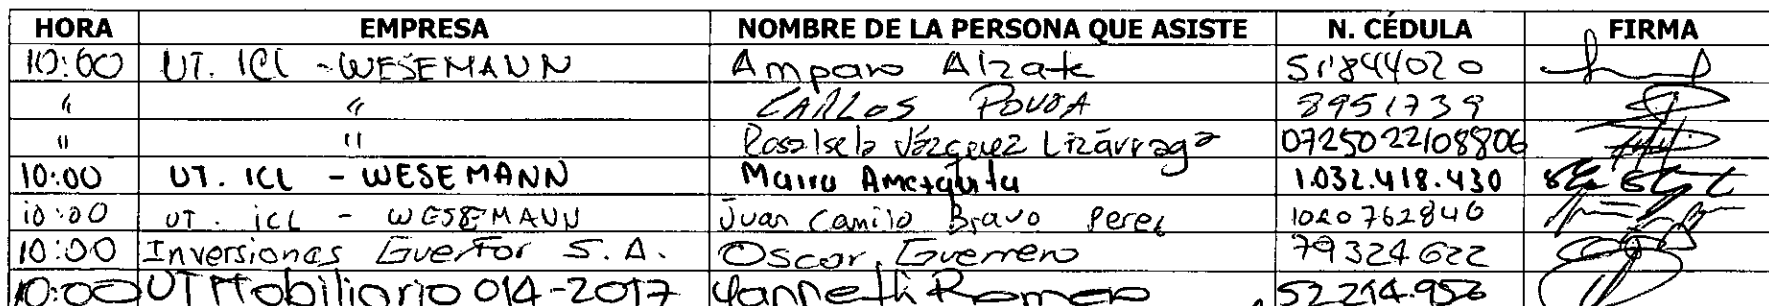 HORA EMPRESA NOMBRE DE LA PERSONA QUE ASISTE N. CÉDULA FIRMA
10:00 UT. ICL - WESEMANN Amparo Alzate 51'844020
" " CARLOS POVDA 8951739
" " Rosalsela Vázquez Lizárraga 0725022108806
10:00 UT. ICL - WESEMANN Maira 1.032.418.430
10:00 UT. icL - WESEMANN Juan Camilo Bravo Perez 1020762846
10:00 Inversiones Guerfor S.A. Oscar Guerrero 79324622
10:00 UT Mobiliario 014-2017 Yanneth Romero 52214.956